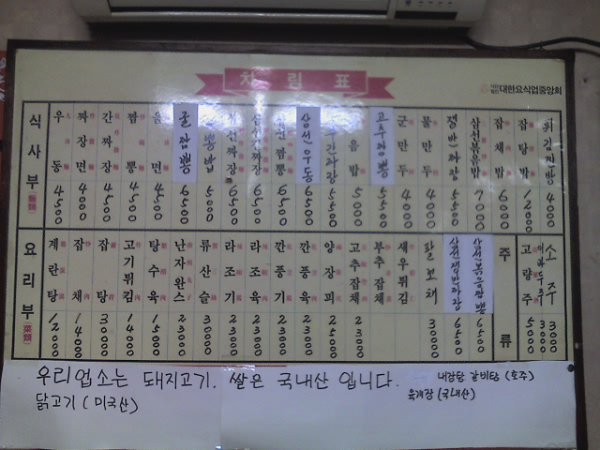 차림표
대한요식업중앙회
식사부
우동 4500
짜장면 4000
간짜장 4500
짬뽕 4500
울면 4500
굴짬뽕 6500
짬뽕밥 5000
삼선짜장 6500
삼선간짜장 6500
삼선짬뽕 6500
삼선우동 6500
간짜장 5500
볶음밥 5000
고추짬뽕 5500
군만두 4000
물만두 4000
쟁반짜장 5500
삼선볶음밥 7000
잡채밥 6000
잡탕밥 12000
4000
요리부
계란탕 12000
잡채 14000
잡탕
고기튀김 14000
탕수육 15000
난자완스 23000
류산슬
라조기 23000
라조육 23000
깐풍기 23000
깐풍육 23000
양장피 25000
고추잡채 23000
부추잡채
새우튀김
팔보채
삼선쟁반짜장 6500
삼선볶음짬뽕 6500
주류
고량주 5000
이과두주 3000
소주 3000
우리업소는 돼지고기. 쌀은 국내산 입니다.
닭고기 (미국산)
갈비탕 (호주)
육개장 (국내산)